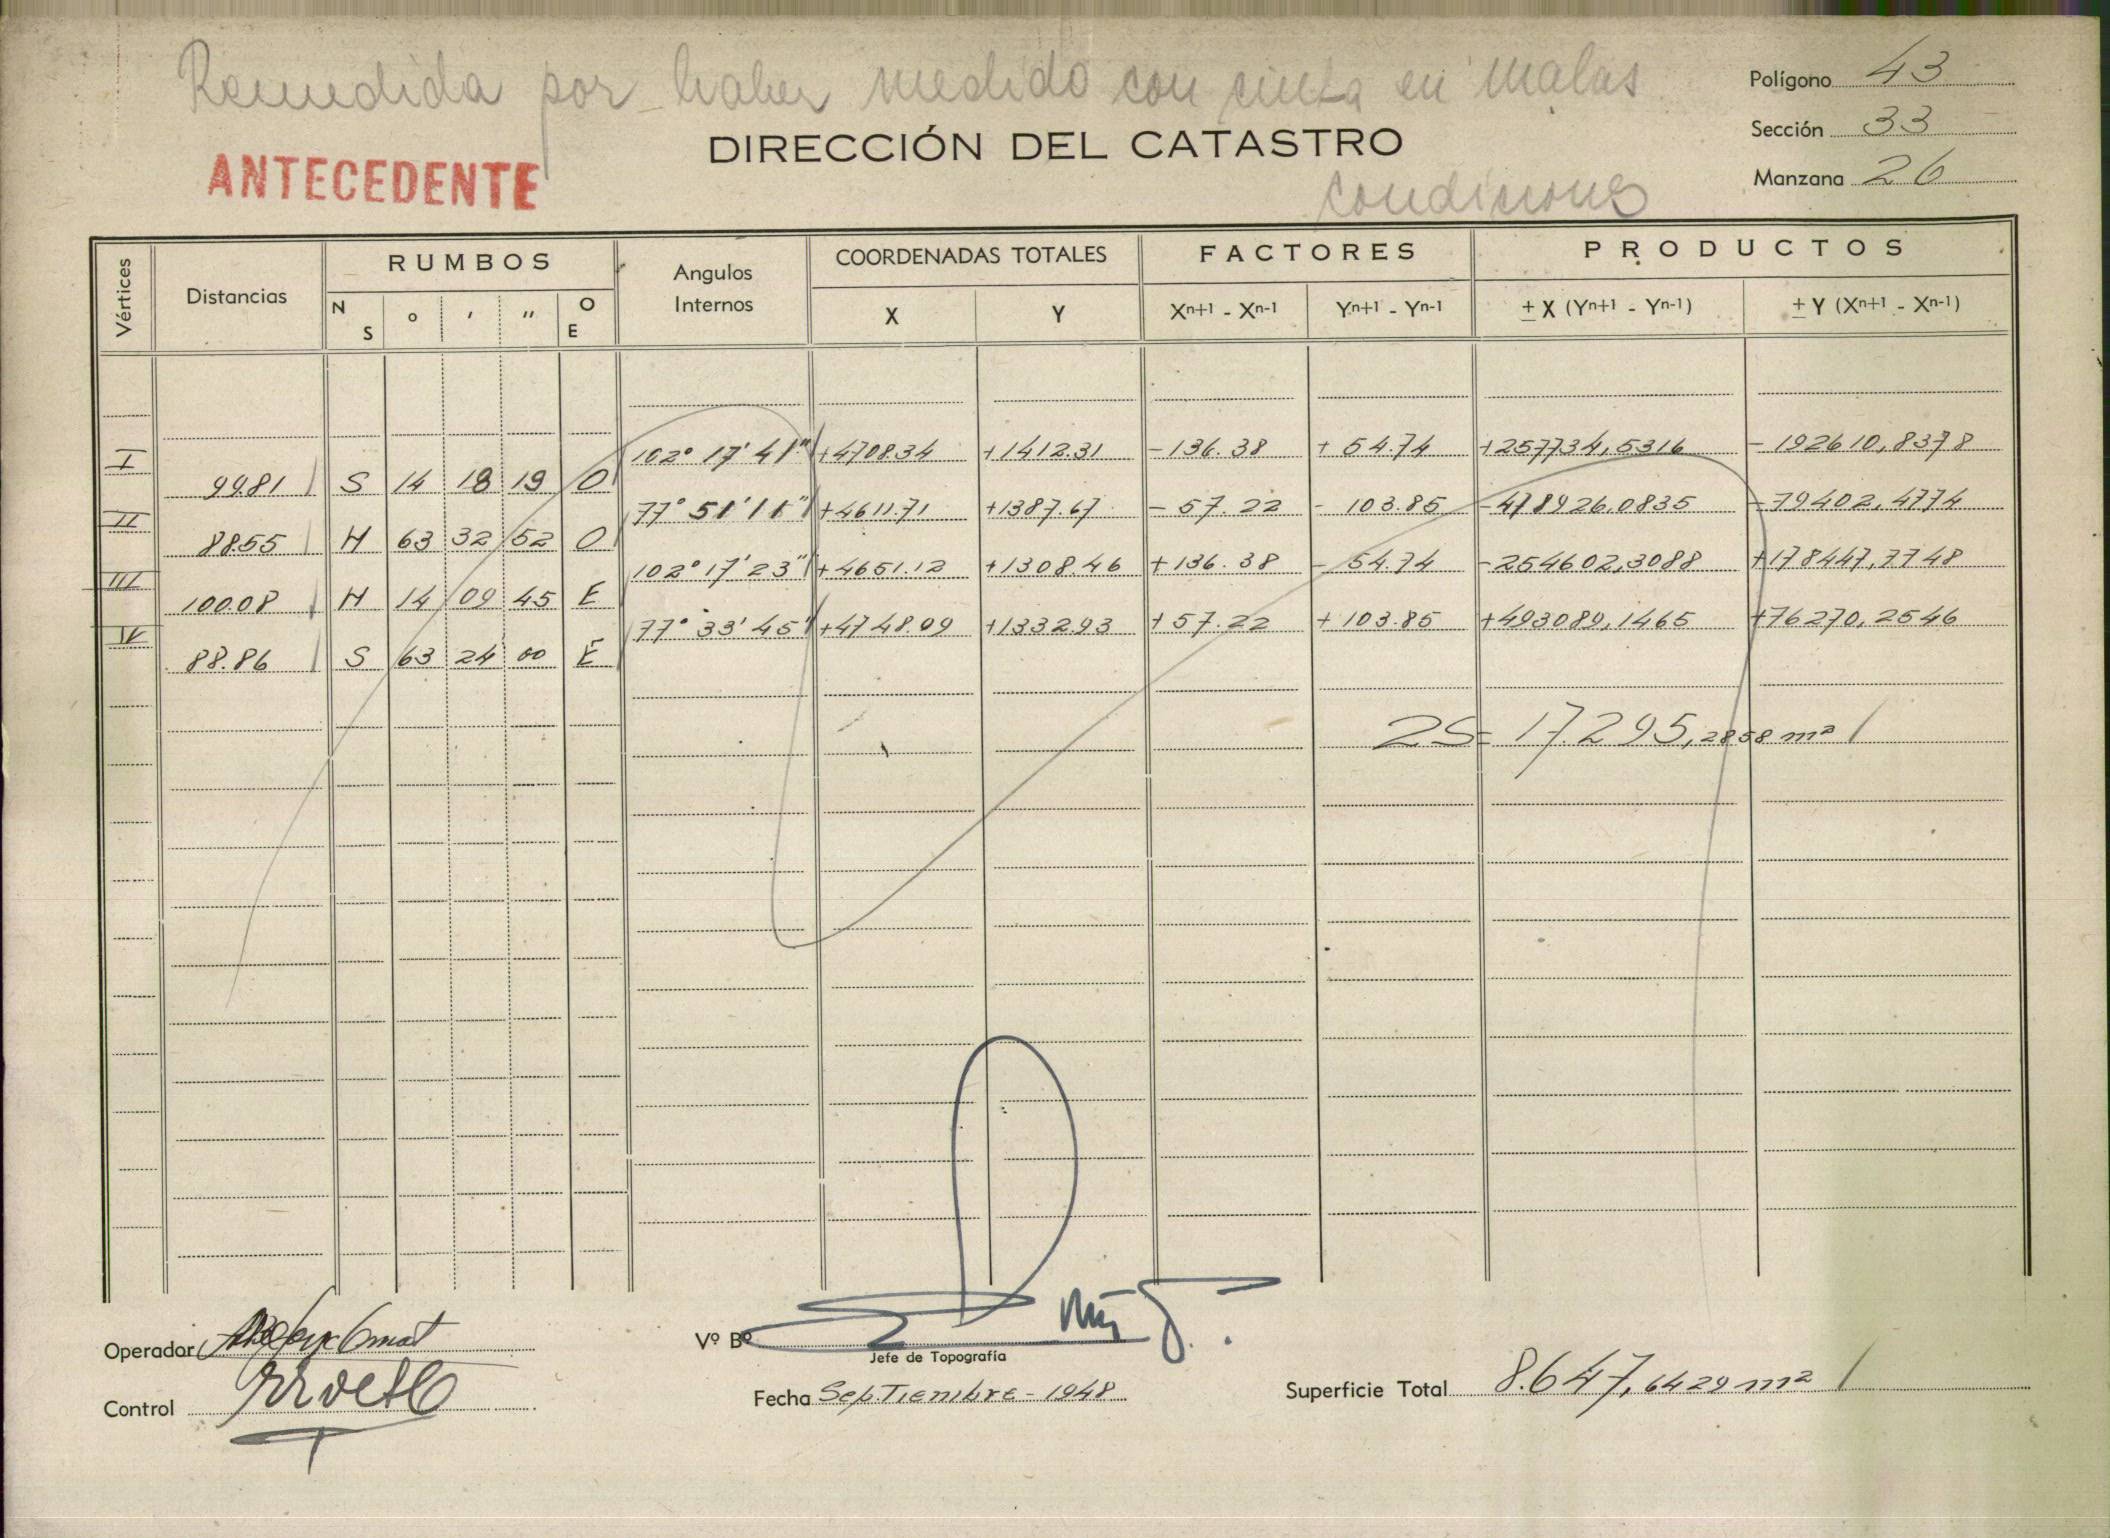 Remedida por haber medido con cinta en malas
condiciones
Polígono 43
Sección 33
Manzana 26
DIRECCIÓN DEL CATASTRO
ANTECEDENTE
Vértices Distancias RUMBOS Angulos Internos COORDENADAS TOTALES FACTORES PRODUCTOS
N S ° ' " O E X Y Xn+1 - Xn-1 Yn+1 - Yn-1 ± X (Yn+1 - Yn-1) ± Y (Xn+1 - Xn-1)
I 102° 17' 41" +4708.34 +1412.31 -136.38 +54.74 +257734,5316 -192610,8378
99.81 S 14 18 19 O
II 77° 51' 11" +4611.71 +1387.67 -57.22 -103.85 -478926,0835 -79402,4774
88.55 N 63 32 52 O
III 102° 17' 23" +4651.12 +1308.46 +136.38 -54.74 -254602,3088 +178447,7748
100.08 N 14 09 45 E
IV 77° 33' 45" +4748.09 +1332.93 +57.22 +103.85 +493089,1465 +76270,2546
88.86 S 63 24 00 E
2S= 17.295,2858 m²
Operador
Control
Vº Bº
Jefe de Topografía
Fecha Septiembre - 1948
Superficie Total 8.647,6429 m²